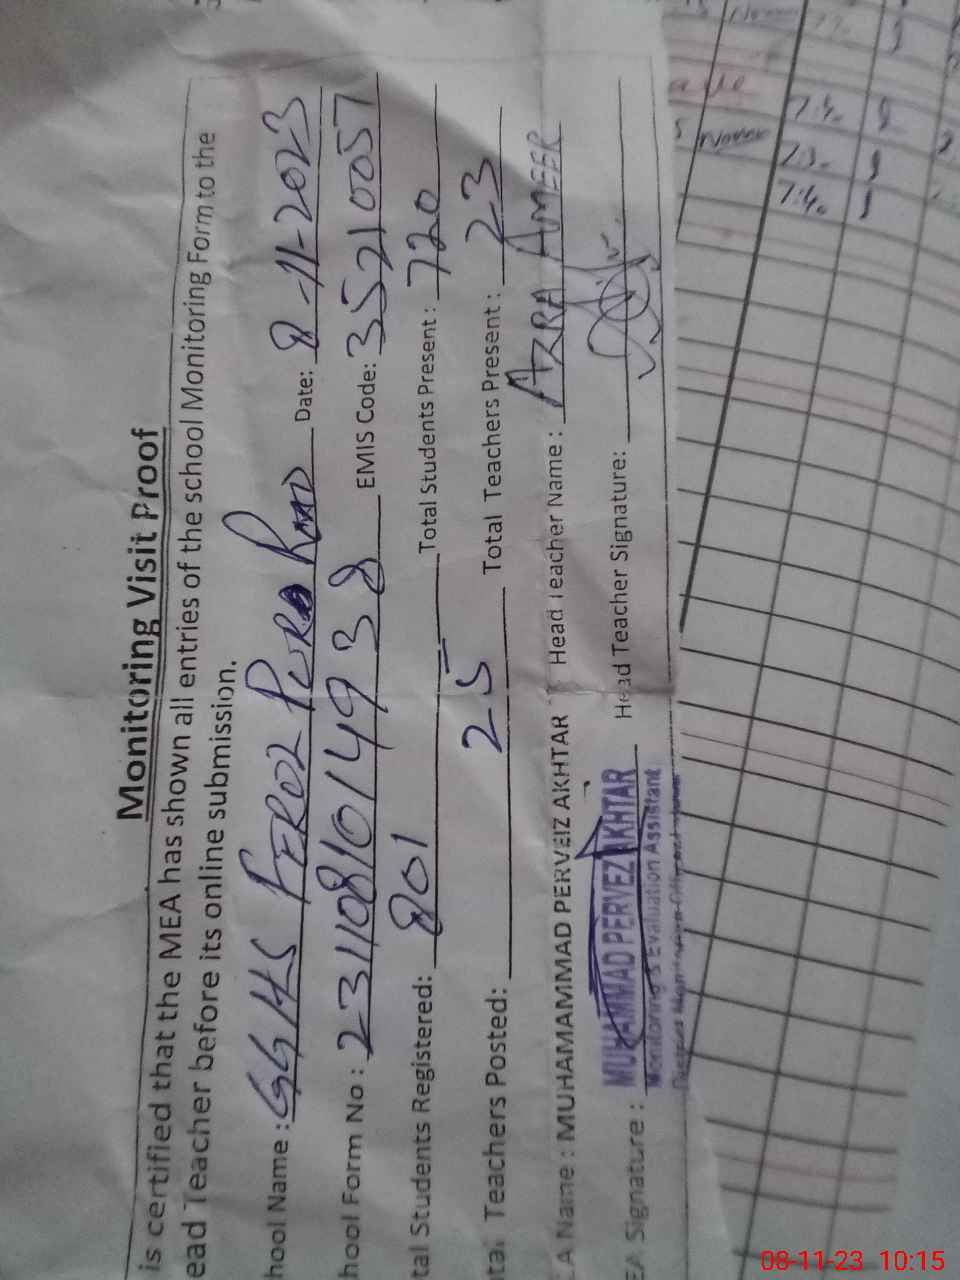 Monitoring Visit Proof
is certified that the MEA has shown all entries of the school Monitoring Form to the
ead Teacher before its online submission.
hool Name : GGHS FEROZ PUR ROAD Date: 8-11-2023
hool Form No : 23110810149 3 8 EMIS Code: 35210057
tal Students Registered: 801 Total Students Present : 720
tal Teachers Posted: 25 Total Teachers Present : 23
EA Name : MUHAMAMMAD PERVEIZ AKHTAR Head Teacher Name : AZRA AMEER
EA Signature : Head Teacher Signature:
MUHAMMAD PERVEZ AKHTAR
Monitoring & Evaluation Assistant
7:40
7:40
08-11-23 10:15